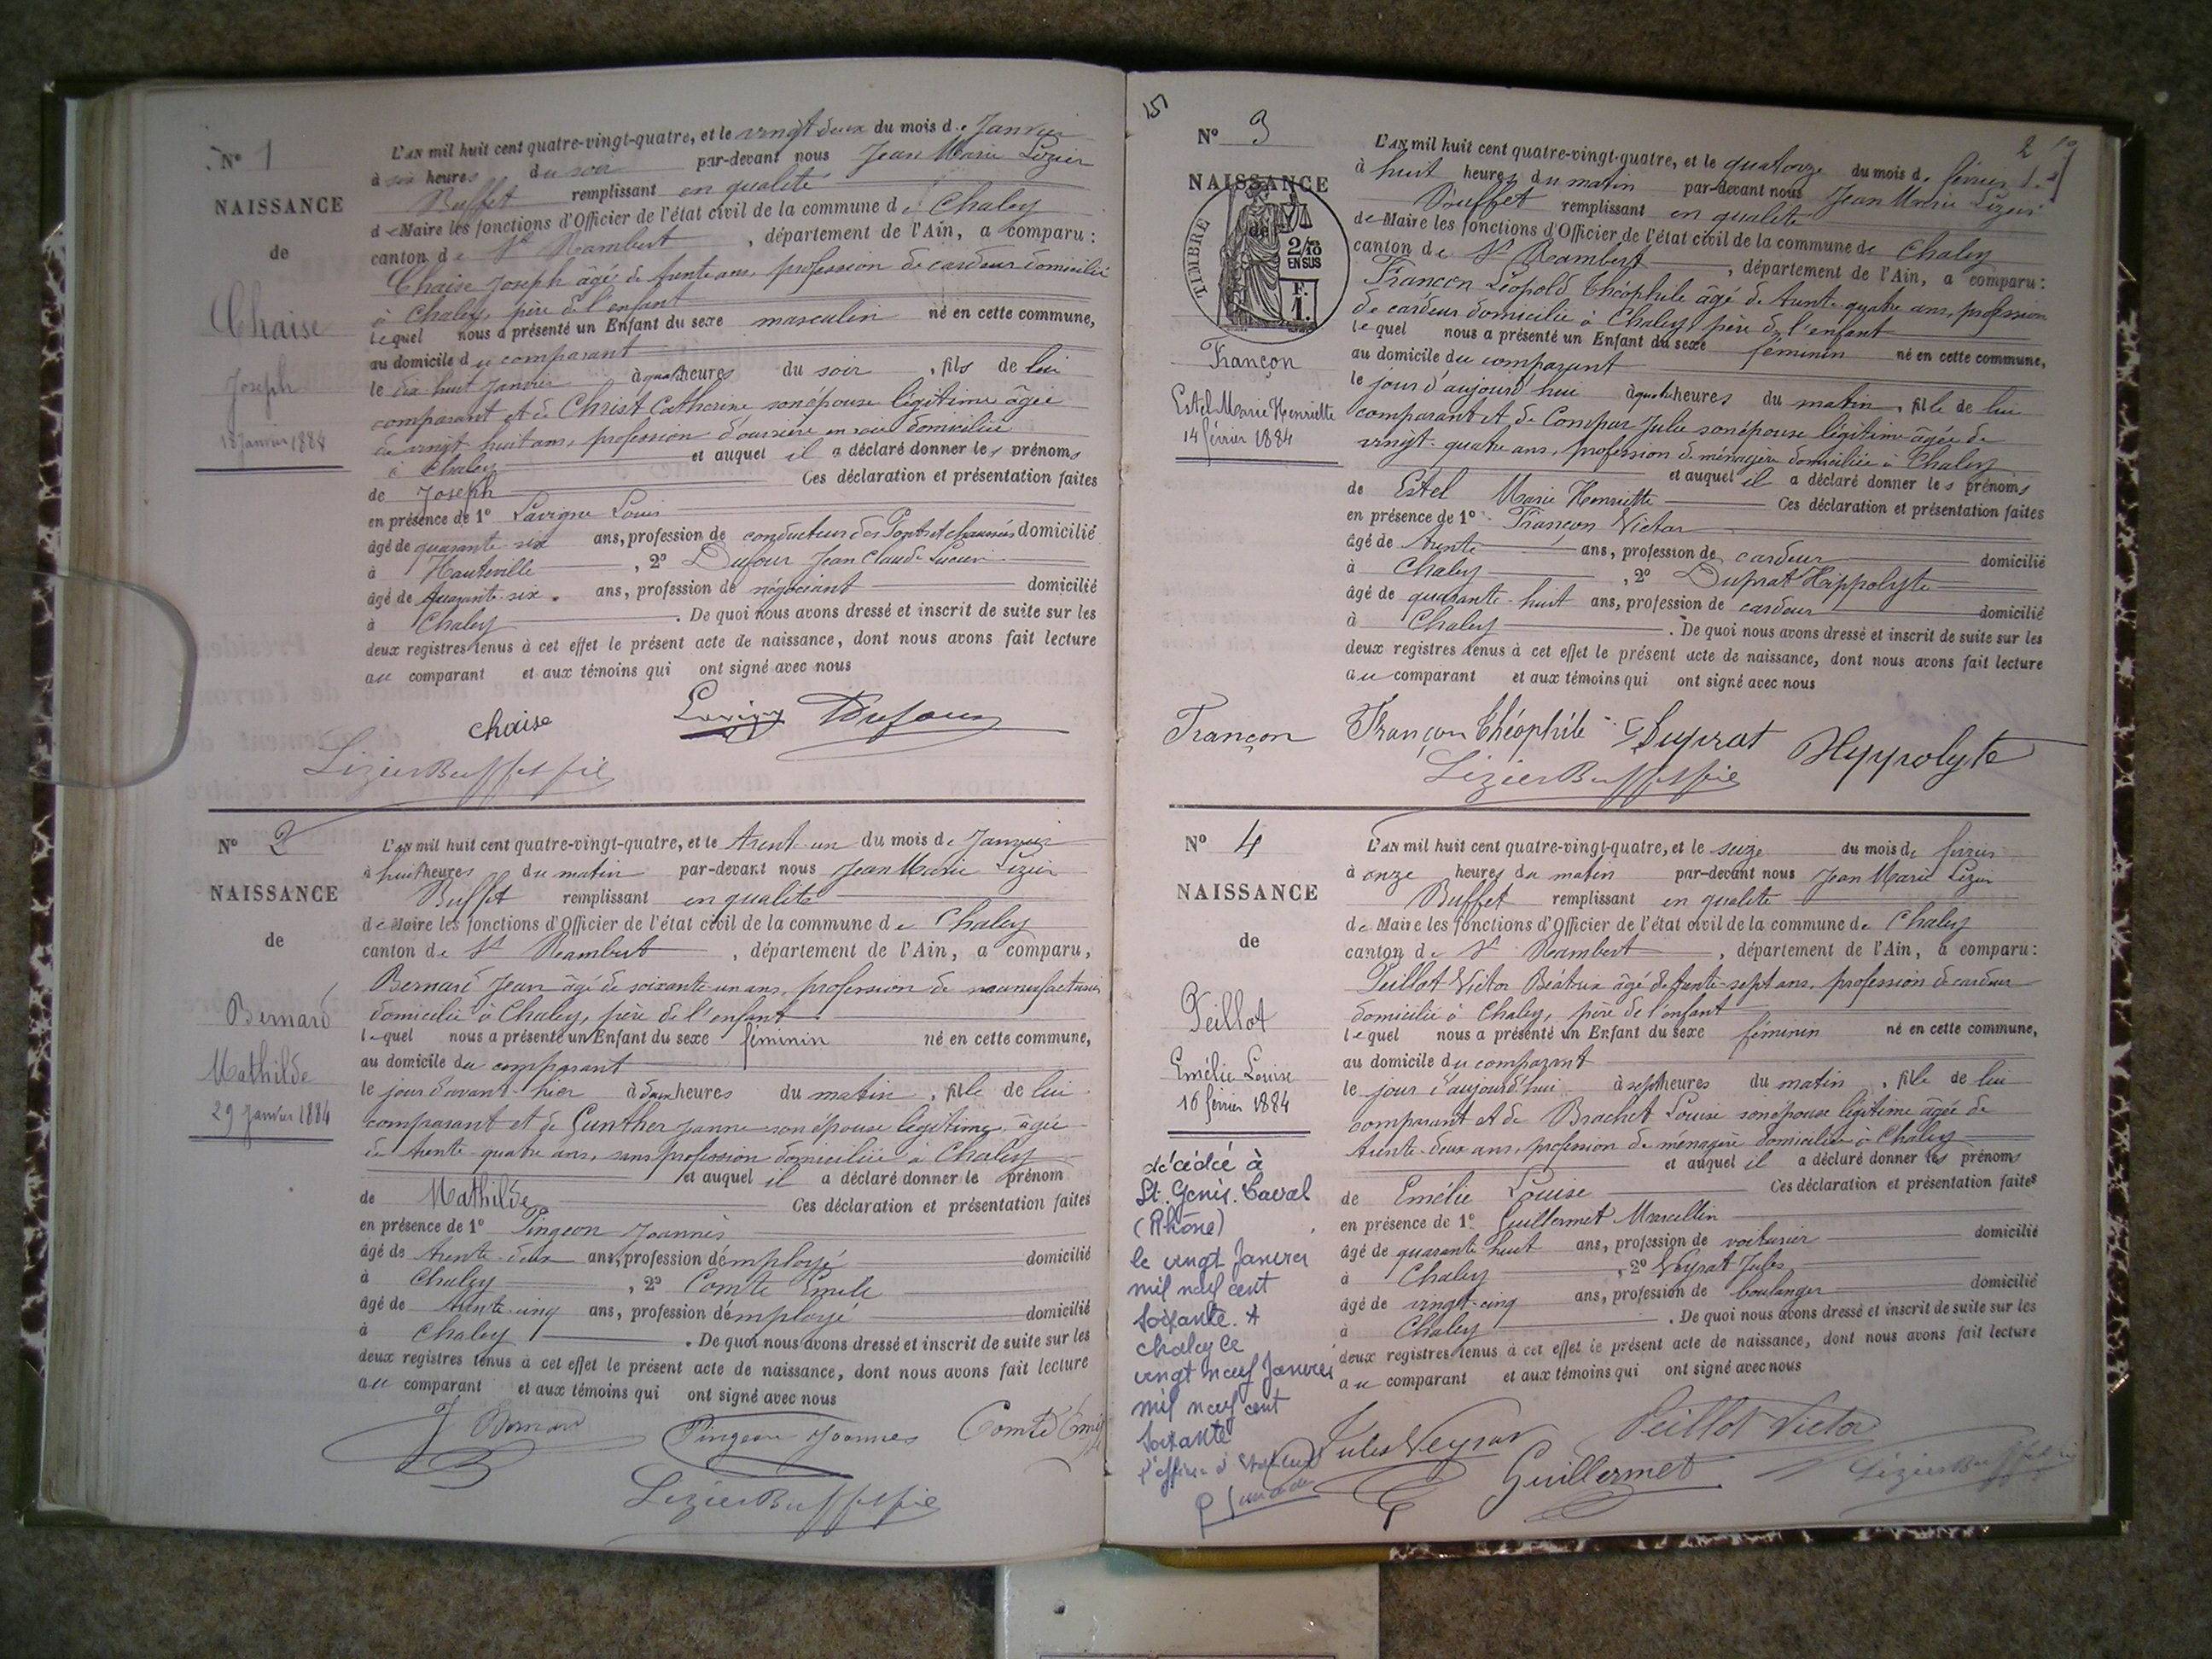 N° 1
NAISSANCE
de
Chaise
Joseph
18 Janvier 1884
L'AN mil huit cent quatre-vingt-quatre, et le vingt deux du mois de Janvier
à six heures du soir par-devant nous Jean Marie Lizier
Buffet remplissant en qualité
de Maire les fonctions d'Officier de l'état civil de la commune de Chaley
canton de St Rambert, département de l'Ain, a comparu :
Chaise Joseph âgé de trente ans, profession de cardeur domicilié
à Chaley, père de l'enfant
lequel nous a présenté un Enfant du sexe masculin né en cette commune,
au domicile du comparant
le dix huit Janvier à quatre heures du soir, fils de lui
comparant et de Christ Catherine son épouse légitime âgée
de vingt huit ans, profession d'ouvrière en soie domiciliée
à Chaley et auquel il a déclaré donner les prénoms
de Joseph Ces déclaration et présentation faites
en présence de 1° Lavigne Louis
âgé de quarante six ans, profession de conducteur des Ponts et chaussées domicilié
à Hauteville, 2° Dufour Jean Claude Lucien
âgé de quarante-six. ans, profession de négociant domicilié
à Chaley. De quoi nous avons dressé et inscrit de suite sur les
deux registres tenus à cet effet le présent acte de naissance, dont nous avons fait lecture
au comparant et aux témoins qui ont signé avec nous
chaise Lavigne Dufour
Lizier Buffet fils
N° 2
NAISSANCE
de
Bernard
Mathilde
29 Janvier 1884
L'AN mil huit cent quatre-vingt-quatre, et le trent-un du mois de Janvier
à huit heures du matin par-devant nous Jean Marie Lizier
Buffet remplissant en qualité
de Maire les fonctions d'Officier de l'état civil de la commune de Chaley
canton de St Rambert, département de l'Ain, a comparu,
Bernard Jean âgé de soixante-un ans, profession de manufacturier
domicilié à Chaley, père de l'enfant
lequel nous a présenté un Enfant du sexe féminin né en cette commune,
au domicile du comparant
le jour d'avant-hier à deux heures du matin, fille de lui
comparant et de Gunther Janne son épouse légitime, âgée
de trente-quatre ans, sans profession domiciliée à Chaley
et auquel il a déclaré donner le prénom
de Mathilde Ces déclaration et présentation faites
en présence de 1° Pingeon Joannès
âgé de trente-deux ans, profession d'employé domicilié
à Chaley, 2° Comte Emile
âgé de trente-cinq ans, profession d'employé domicilié
à Chaley. De quoi nous avons dressé et inscrit de suite sur les
deux registres tenus à cet effet le présent acte de naissance, dont nous avons fait lecture
au comparant et aux témoins qui ont signé avec nous
J Bernard Pingeon Joannes Comte Emile
Lizier Buffet fils
151
2
N° 3
NAISSANCE
de
TIMBRE
2/10 EN SUS
F. 1.
Françon
Estel Marie Henriette
14 février 1884
L'AN mil huit cent quatre-vingt-quatre, et le quatorze du mois de février
à huit heures du matin par-devant nous Jean Marie Lizier
Buffet remplissant en qualité
de Maire les fonctions d'Officier de l'état civil de la commune de Chaley
canton de St Rambert, département de l'Ain, a comparu :
Françon Léopold Théophile âgé de trente-quatre ans, profession
de cardeur domicilié à Chaley, père de l'enfant
lequel nous a présenté un Enfant du sexe féminin né en cette commune,
au domicile du comparant
le jour d'aujourd'hui à quatre heures du matin, fille de lui
comparant et de Compar Julie son épouse légitime âgée de
vingt-quatre ans, profession de ménagère domiciliée à Chaley
et auquel il a déclaré donner les prénoms
de Estel Marie Henriette Ces déclaration et présentation faites
en présence de 1° Françon Victor
âgé de trente ans, profession de cardeur domicilié
à Chaley, 2° Duprat Hippolyte
âgé de quarante-huit ans, profession de cardeur domicilié
à Chaley. De quoi nous avons dressé et inscrit de suite sur les
deux registres tenus à cet effet le présent acte de naissance, dont nous avons fait lecture
au comparant et aux témoins qui ont signé avec nous
Françon Françon Théophile Duprat Hyppolyte
Lizier Buffet fils
N° 4
NAISSANCE
de
Peillot
Emélie Louise
16 février 1884
décédée à
St. Genis. Laval
(Rhône)
le vingt Janvier
mil neuf cent
soixante. +
chaley le
vingt neuf Janvier
mil neuf cent
soixante
l'officier d'état civil
L'AN mil huit cent quatre-vingt-quatre, et le seize du mois de février
à onze heures du matin par-devant nous Jean Marie Lizier
Buffet remplissant en qualité
de Maire les fonctions d'Officier de l'état civil de la commune de Chaley
canton de St Rambert, département de l'Ain, a comparu :
Peillot Victor Béatrix âgé de trente-sept ans, profession de cardeur
domicilié à Chaley, père de l'enfant
lequel nous a présenté un Enfant du sexe féminin né en cette commune,
au domicile du comparant
le jour d'aujourd'hui à sept heures du matin, fille de lui
comparant et de Brachet Louise son épouse légitime âgée de
trente-deux ans, profession de ménagère domiciliée à Chaley
et auquel il a déclaré donner les prénoms
de Emélie Louise Ces déclaration et présentation faites
en présence de 1° Guillermet Marcellin
âgé de quarante huit ans, profession de voiturier domicilié
à Chaley, 2° Veyrat Jules
âgé de vingt-cinq ans, profession de boulanger domicilié
à Chaley. De quoi nous avons dressé et inscrit de suite sur les
deux registres tenus à cet effet le présent acte de naissance, dont nous avons fait lecture
au comparant et aux témoins qui ont signé avec nous
Jules Veyrat Peillot Victor
Guillermet Lizier Buffet fils